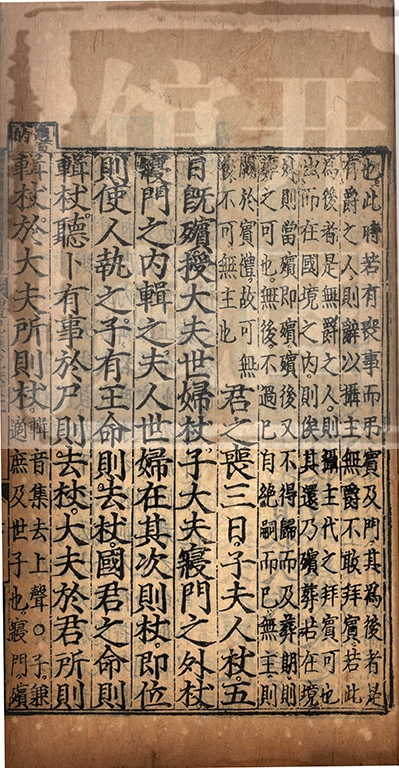 也。此時若有喪事而弔賓及門其爲後者是
有爵之人則辭以攝主無爵不敢拜賓若此
爲後者是無爵之人則攝主代之拜賓可也
出而在國境之內則俟其還乃殯葬若在境
外則當殯即殯後又不得歸而及葬期則
葬之可也無後不過已自絕嗣而已無主則
闕於賓禮故可無
後不可無主也
君之喪三日子夫人杖五
日既殯授大夫世婦杖子大夫寢門之外杖
寢門之內輯之夫人世婦在其次則杖即位
則使人執之子有王命則去杖國君之命則
輯杖聽卜有事於尸則去杖大夫於君所則
輯杖於大夫所則杖
輯音集去上聲○子兼
適庶及世子也寢門殯